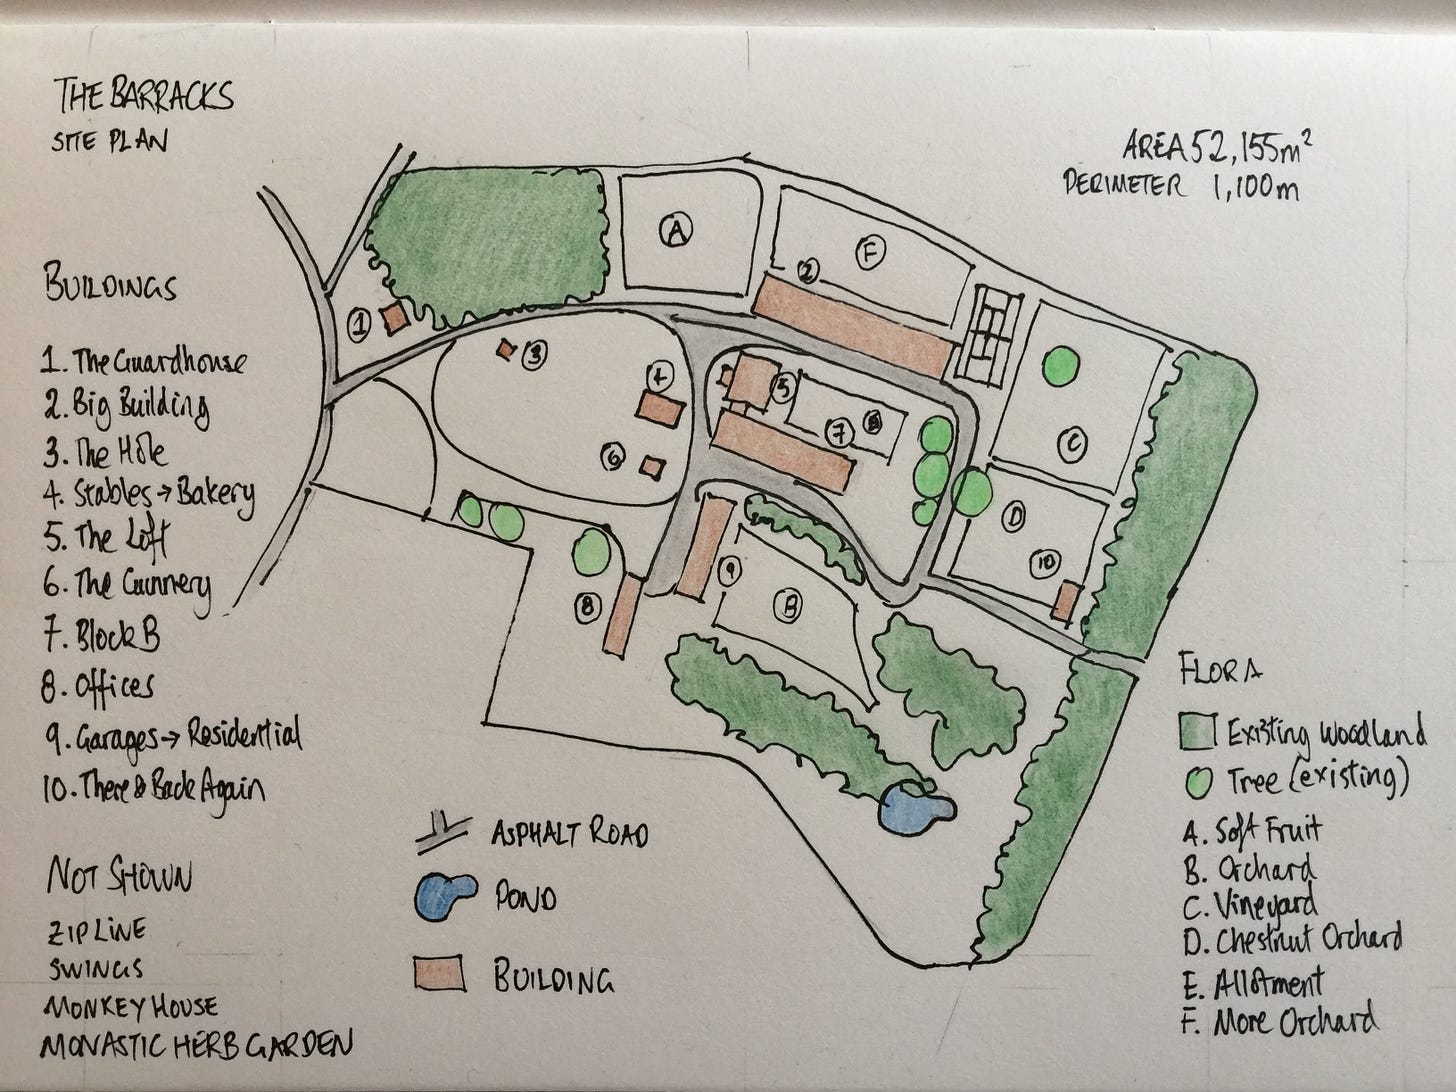 THE BARRACKS
SITE PLAN
AREA 52,155m²
PERIMETER 1,100m
BUILDINGS
1. The Guardhouse
2. Big Building
3. The Hole
4. Stables → Bakery
5. The Loft
6. The Gunnery
7. Block B
8. Offices
9. Garages → Residential
10. There & Back Again
NOT SHOWN
ZIP LINE
SWINGS
MONKEY HOUSE
MONASTIC HERB GARDEN
A
F
2
1
3
4
5
7
6
C
D
10
9
B
8
ASPHALT ROAD
POND
BUILDING
FLORA
Existing Woodland
Tree (existing)
A. Soft Fruit
B. Orchard
C. Vineyard
D. Chestnut Orchard
E. Allotment
F. More Orchard